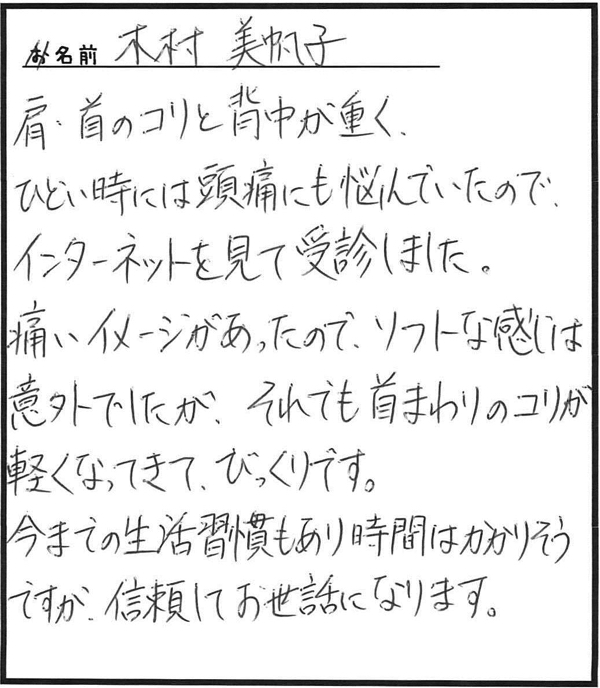 お名前 木村 美帆子
肩・首のコリと背中が重く、
ひどい時には頭痛にも悩んでいたので、
インターネットを見て受診しました。
痛いイメージがあったので、ソフトな感じは
意外でしたが、それでも首まわりのコリが
軽くなってきて、びっくりです。
今までの生活習慣もあり時間はかかりそう
ですが、信頼してお世話になります。